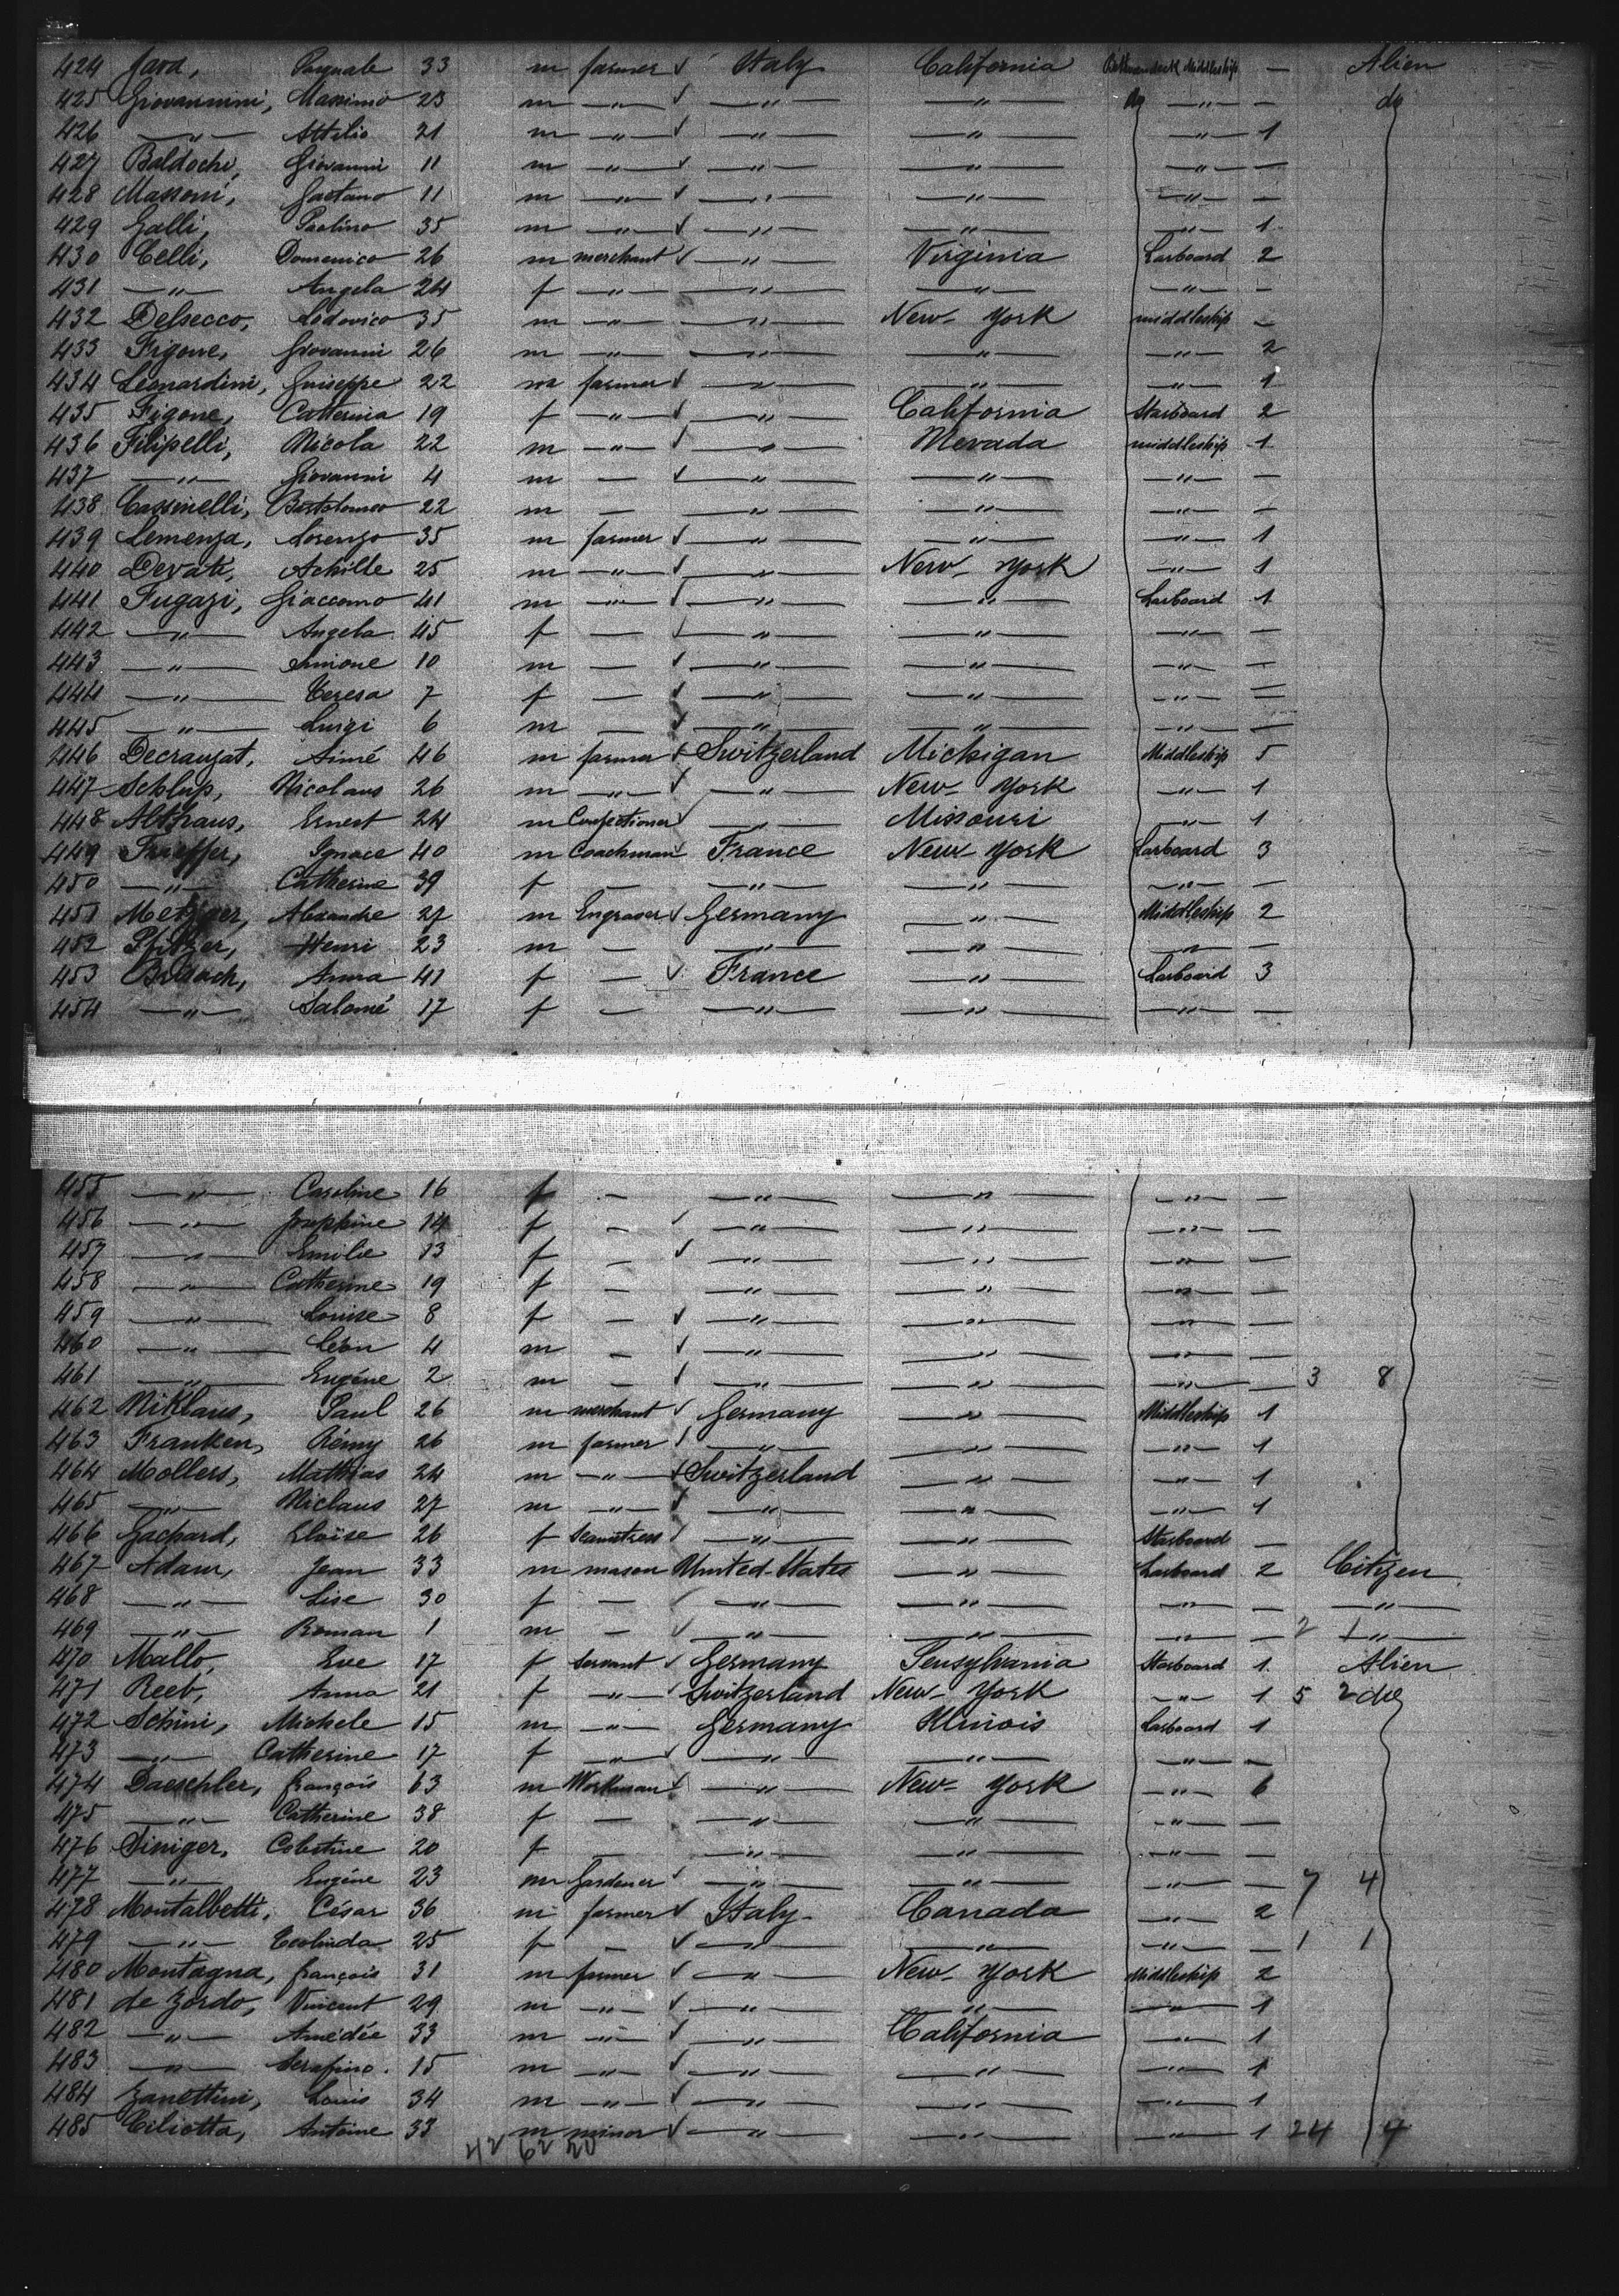 424 Java, Pasquale 33 m farmer √ Italy California Middleship — Alien
425 Giovannini, Massimo 23 m —"— √ —"— —"— do —"— — do
426 —"— Attilio 21 m —"— √ —"— —"— —"— 1
427 Baldochi, Giovanni 11 m —"— √ —"— —"— —"— —
428 Massoni, Gaetano 11 m —"— √ —"— —"— —"— —
429 Galli, Paolino 35 m —"— √ —"— —"— —"— 1
430 Celli, Domenico 26 m merchant √ —"— Virginia Larboard 2
431 —"— Angela 24 f —"— —"— —"— —"— —
432 Delsecco, Lodovico 35 m —"— —"— New-York middleship —
433 Figone, Giovanni 26 m —"— —"— —"— —"— 2
434 Leonardini, Guiseppe 22 m farmer √ —"— —"— —"— 1
435 Figone, Catterina 19 f —"— √ —"— California Starboard 2
436 Filipelli, Nicola 22 m —"— √ —"— Nevada middleship 1
437 —"— Giovanni 4 m — √ —"— —"— —"— —
438 Cassinelli, Bartolomeo 22 m — —"— —"— —"— —
439 Lemenza, Lorenzo 35 m farmer √ —"— —"— —"— 1
440 Devoti, Achille 25 m —"— √ —"— New-York —"— 1
441 Fugazi, Giaccomo 41 m —"— √ —"— —"— Larboard 1
442 —"— Angela 45 f — √ —"— —"— —"— —
443 —"— Simone 10 m — √ —"— —"— —"— —
444 —"— Teresa 7 f — √ —"— —"— —"— —
445 —"— Luigi 6 m — √ —"— —"— —"— —
446 Decrauzat, Aimé 46 m farmer √ Switzerland Michigan Middleship 5
447 Schlup, Nicolaus 26 m —"— √ —"— New-York —"— 1
448 Althaus, Ernest 24 m Confectioner √ —"— Missouri —"— 1
449 Ignace 40 m Coachman √ France New-York Larboard 3
450 —"— Catherine 39 f — —"— —"— —"— —
451 Metzger, Alexandre 27 m Engraver √ Germany —"— Middleship 2
452 Pfitzer, Henri 23 m — —"— —"— —"— —
453 Anna 41 f — √ France —"— Larboard 3
454 —"— Salomé 17 f — —"— —"— —"— —
455 —"— Caroline 16 f — —"— —"— —"— —
456 —"— Josephine 14 f — √ —"— —"— —"— —
457 —"— Emilie 13 f — √ —"— —"— —"— —
458 —"— Catherine 19 f — —"— —"— —"— —
459 —"— Louise 8 f — √ —"— —"— —"— —
460 —"— Léon 4 m — √ —"— —"— —"— —
461 —"— Eugéne 2 m — √ —"— —"— —"— — 3 8
462 Niklaus, Paul 26 m merchant √ Germany —"— Middleship 1
463 Franken, Rémy 26 m farmer √ —"— —"— —"— 1
464 Mollers, Mathias 24 m —"— √ Switzerland —"— —"— 1
465 —"— Niclaus 27 m —"— √ —"— —"— —"— 1
466 Gachard, Eloïse 26 f seamstress √ —"— —"— Starboard —
467 Adam, Jean 33 m mason United-States —"— Larboard 2 Citizen
468 —"— Lise 30 f — √ —"— —"— —"— — —"—
469 —"— Roman 1 m — √ —"— —"— —"— — 2 1 —"—
470 Mallo, Eve 17 f servant √ Germany Pensylvania Starboard 1 Alien
471 Reeb, Anna 21 f —"— √ Switzerland New-York —"— 1 5 2 do
472 Schini, Michele 15 m —"— Germany Illinois Larboard 1
473 —"— Catherine 17 f —"— √ —"— —"— —"— —
474 Daeschler, françois 63 m Workman √ —"— New-York —"— 6
475 —"— Catherine 38 f — —"— —"— —"— —
476 Siniger, Celestine 20 f — —"— —"— —"— —
477 —"— Eugéne 23 m Gardener √ —"— —"— —"— — 7 4
478 Montalbetti, César 36 m farmer √ Italy Canada —"— 2
479 —"— Teolinda 25 f — √ —"— —"— —"— — 1 1
480 Montagna, françois 31 m farmer √ —"— New-York Middleship 2
481 de Zordo, Vincent 29 m —"— √ —"— —"— —"— 1
482 —"— Amédée 33 m —"— √ —"— California —"— 1
483 —"— Serafino 15 m —"— √ —"— —"— —"— 1
484 Zanettini, Louis 34 m —"— √ —"— —"— —"— 1
485 Ciliotta, Antoine 33 m minor √ —"— —"— —"— 1 24 4
42 62 20